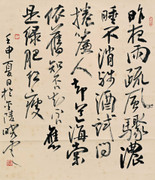 昨夜雨疏風驟濃
睡不消殘酒試問
捲簾人卻道海棠
依舊知否知否應
是綠肥紅瘦
壬申夏日於